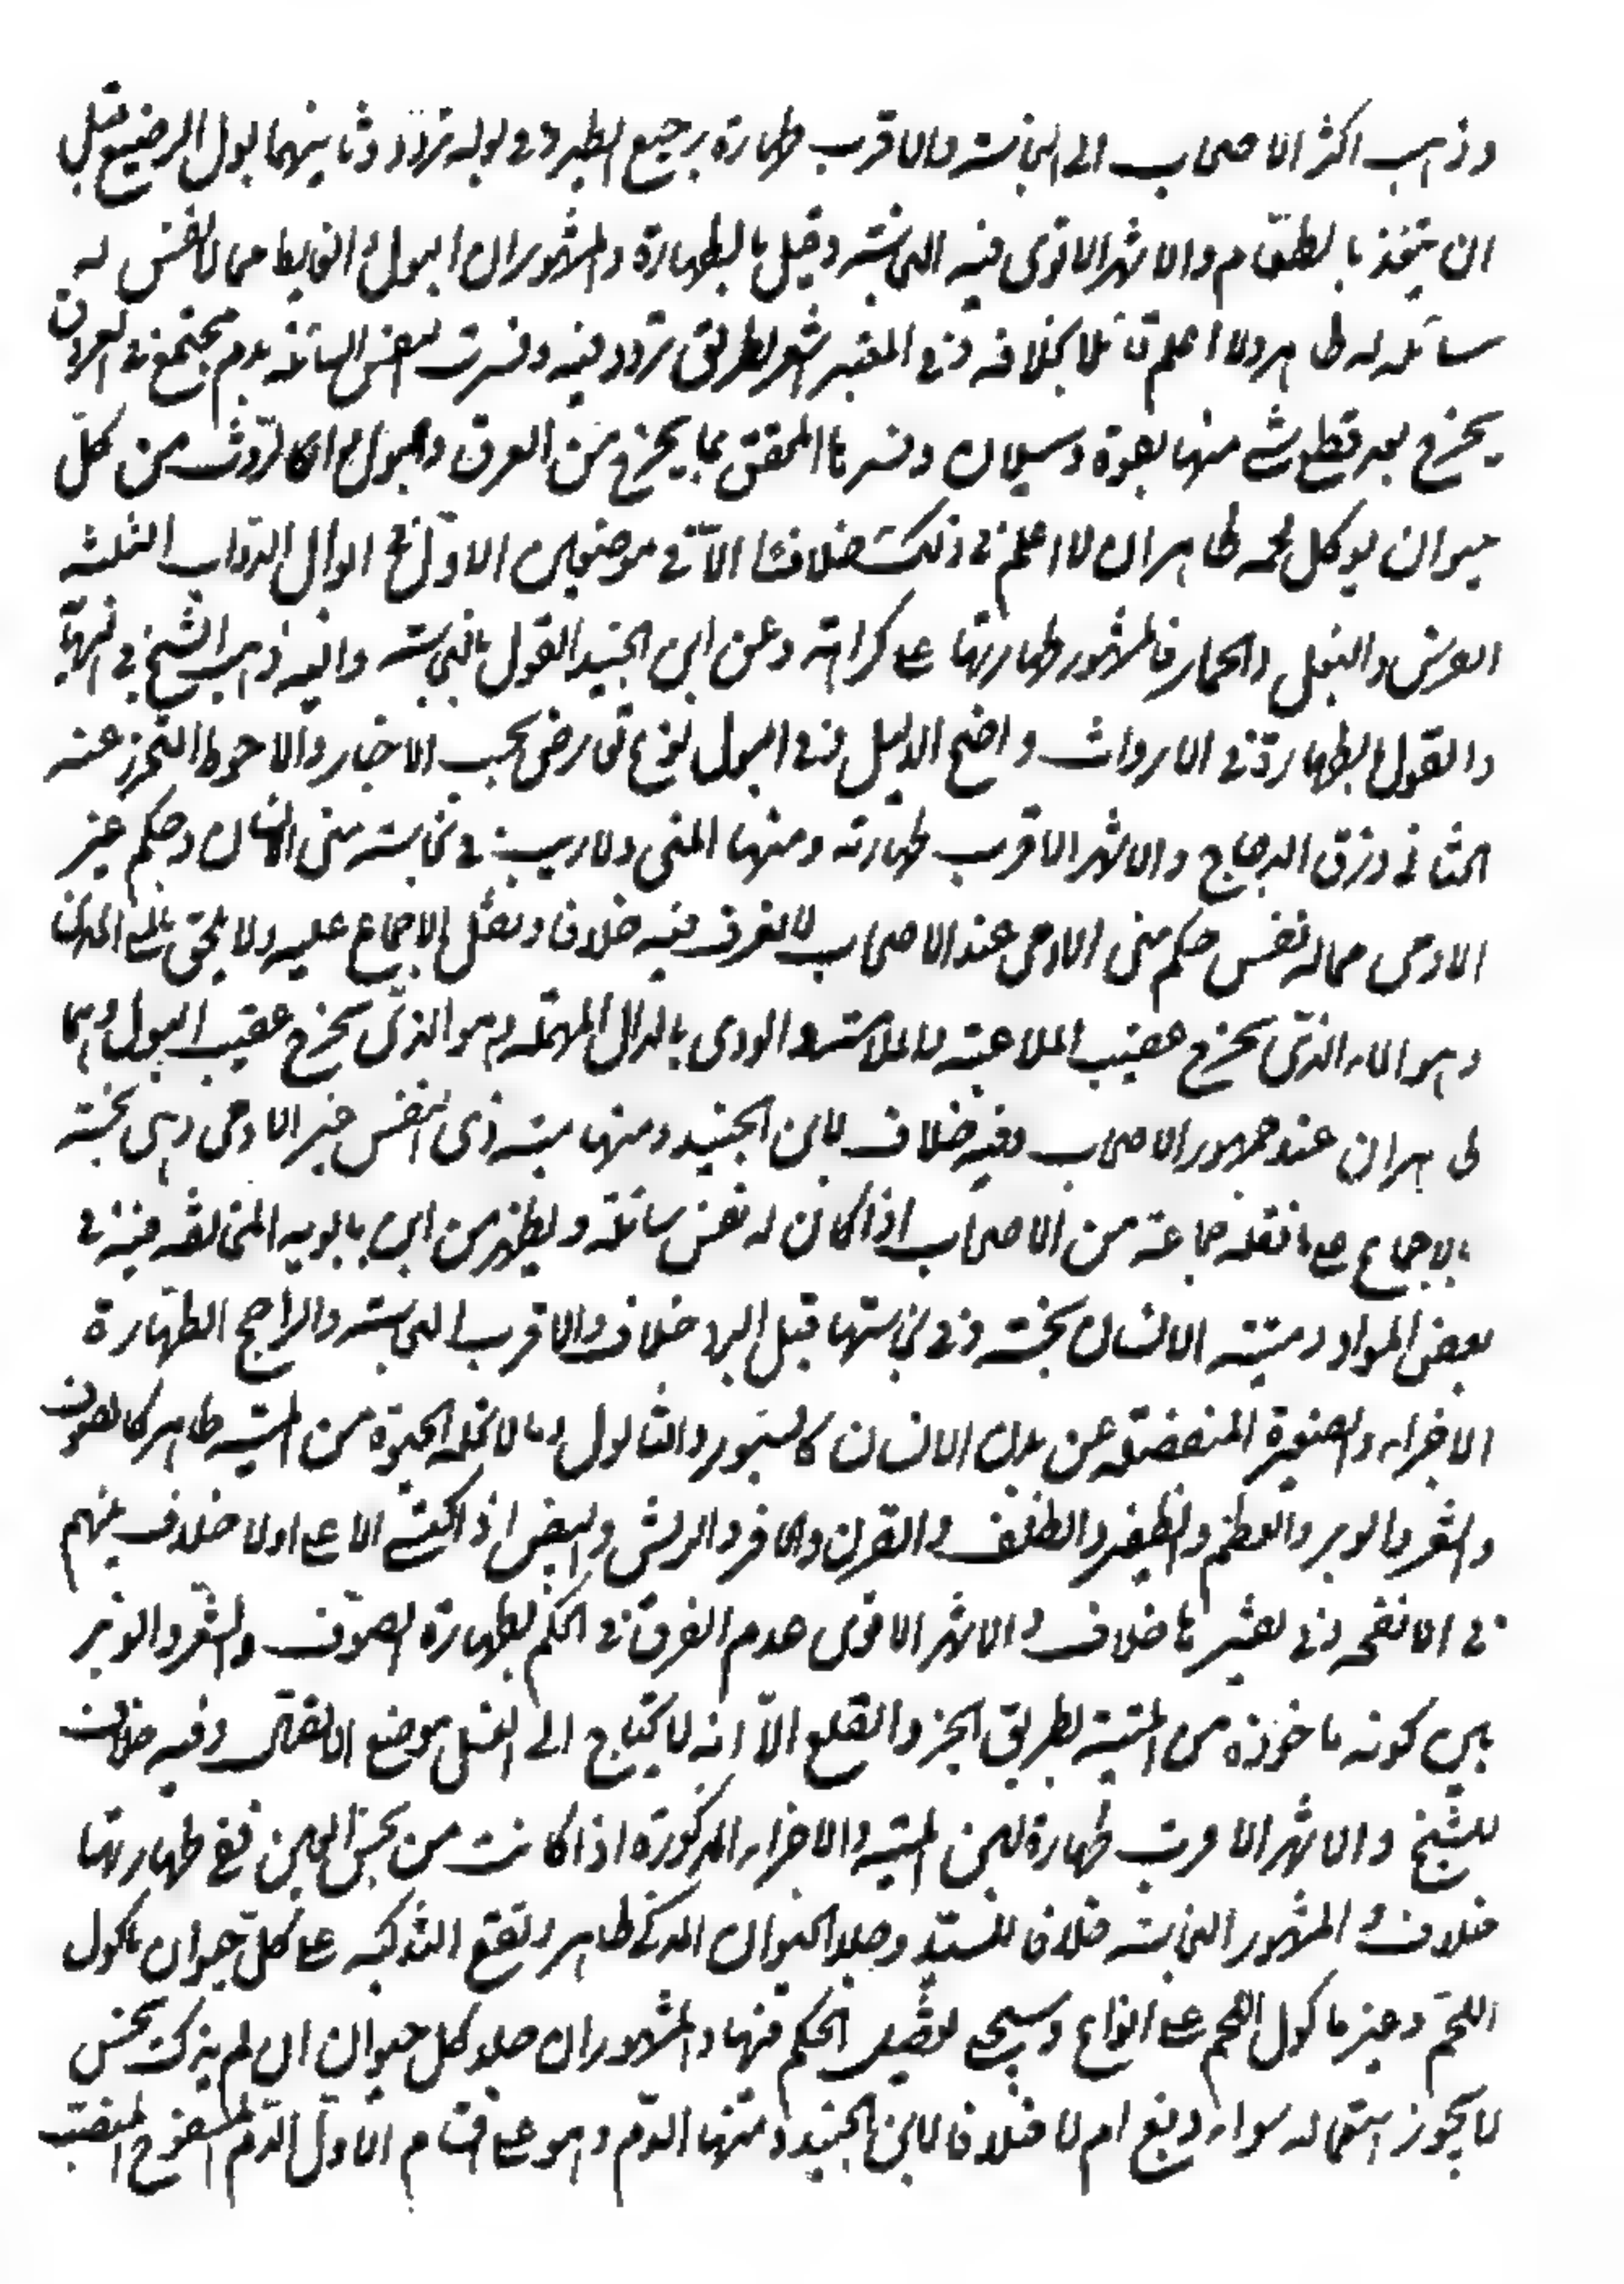 وذهب اكثر الاصحاب الى النجاسته والاقرب طهارة رجيع الطير وفى بوله تردد وثانيهما بول الرضيع قبل
ان يتغذ بالطعام والاشهر الاقوى فيه النجاسته وقيل بالطهارة والمشهور ان البول والغايط مما لا نفس له
سائله له طاهر ولا اعلم قائلا بخلافه وفى المعتبر اشعار بطريق تردد فيه وفسرت النفس السائله بدم مجتمع فى العروق
يخرج بعد قطع شئ منها بقوة وسيلان وفسرها المحقق بما يخرج من العرق والبول والروث من كل
حيوان يوكل لحمه طاهران لا اعلم فى ذلك خلافا الا فى موضعين الاول فى ابوال الدواب الثلثه
الفرس والبغل والحمار فالمشهور طهارتها على كراهته وعن ابن الجنيد القول بالنجاسته واليه ذهب الشيخ فى النهاية
والقول بطهارة فى الارواث واضح الدليل وفى البول نوع تعارض بحسب الاخبار والاحوط التحرز عنه
الثانى ذرق الدجاج والاشهر الاقرب طهارته ومنها المنى ولا ريب فى نجاسته منى الانسان وحكم غير
الادمى مما له نفس حكم منى الادمى عند الاصحاب لا نعرف فيه خلافا ونقل الاجماع عليه ولا يلحق بالمنى المذى
وهو الماء الذى يخرج عقيب الملاعبته والملامسته والودى بالدال المهمله وهو الذى يخرج عقيب البول وهما
طاهران عند جمهور الاصحاب وفيه خلاف لابن الجنيد ومنها ميته ذى النفس غير الادمى وهى نجسته
بالاجماع على ما نقله جماعته من الاصحاب اذا كان له نفس سائله ويظهر من ابن بابويه المخالفه فيه فى
بعض المواد وميته الانسان نجسته وفى نجاستها قبل البرد خلاف والاقرب النجاسته والراجح الطهارة
الاجزاء الصغيرة المنفصله عن بدن الانسان كالبثور والثالول وما لا تحله الحيوة من الميته طاهر كالصوف
والشعر والوبر والعظم والظفر والظلف والقرن والحافر والريش والبيض اذا اكتسى الاعلى ولا خلاف بينهم
فى الانفحه وفى تفسيرها خلاف والاشهر الاقوى عدم الفرق فى الحكم بطهارة الصوف والشعر والوبر
بين كونه ماخوذه من الميتة بطريق الجز والقلع الا انه لا يحتاج الى الغسل موضع الاتصال وفيه خلاف
للشيخ والاشهر الاقرب طهارة لبن الميته والاجزاء المذكورة اذا كانت من نجس العين ففى طهارتها
خلاف والمشهور النجاسته خلافا للسيد وجلد الحيوان المذكى طاهر وتقع التذكيه على كل حيوان ماكول
اللحم وغير ماكول اللحم على انواع وسيجى تفصيل الحكم فيها والمشهور ان جلد كل حيوان ان لم يذك نجس
لا يجوز استعماله سواء دبغ ام لا خلافا لابن الجنيد ومنها الدم وهو على اقسام الاول الدم المسفوح المنصب